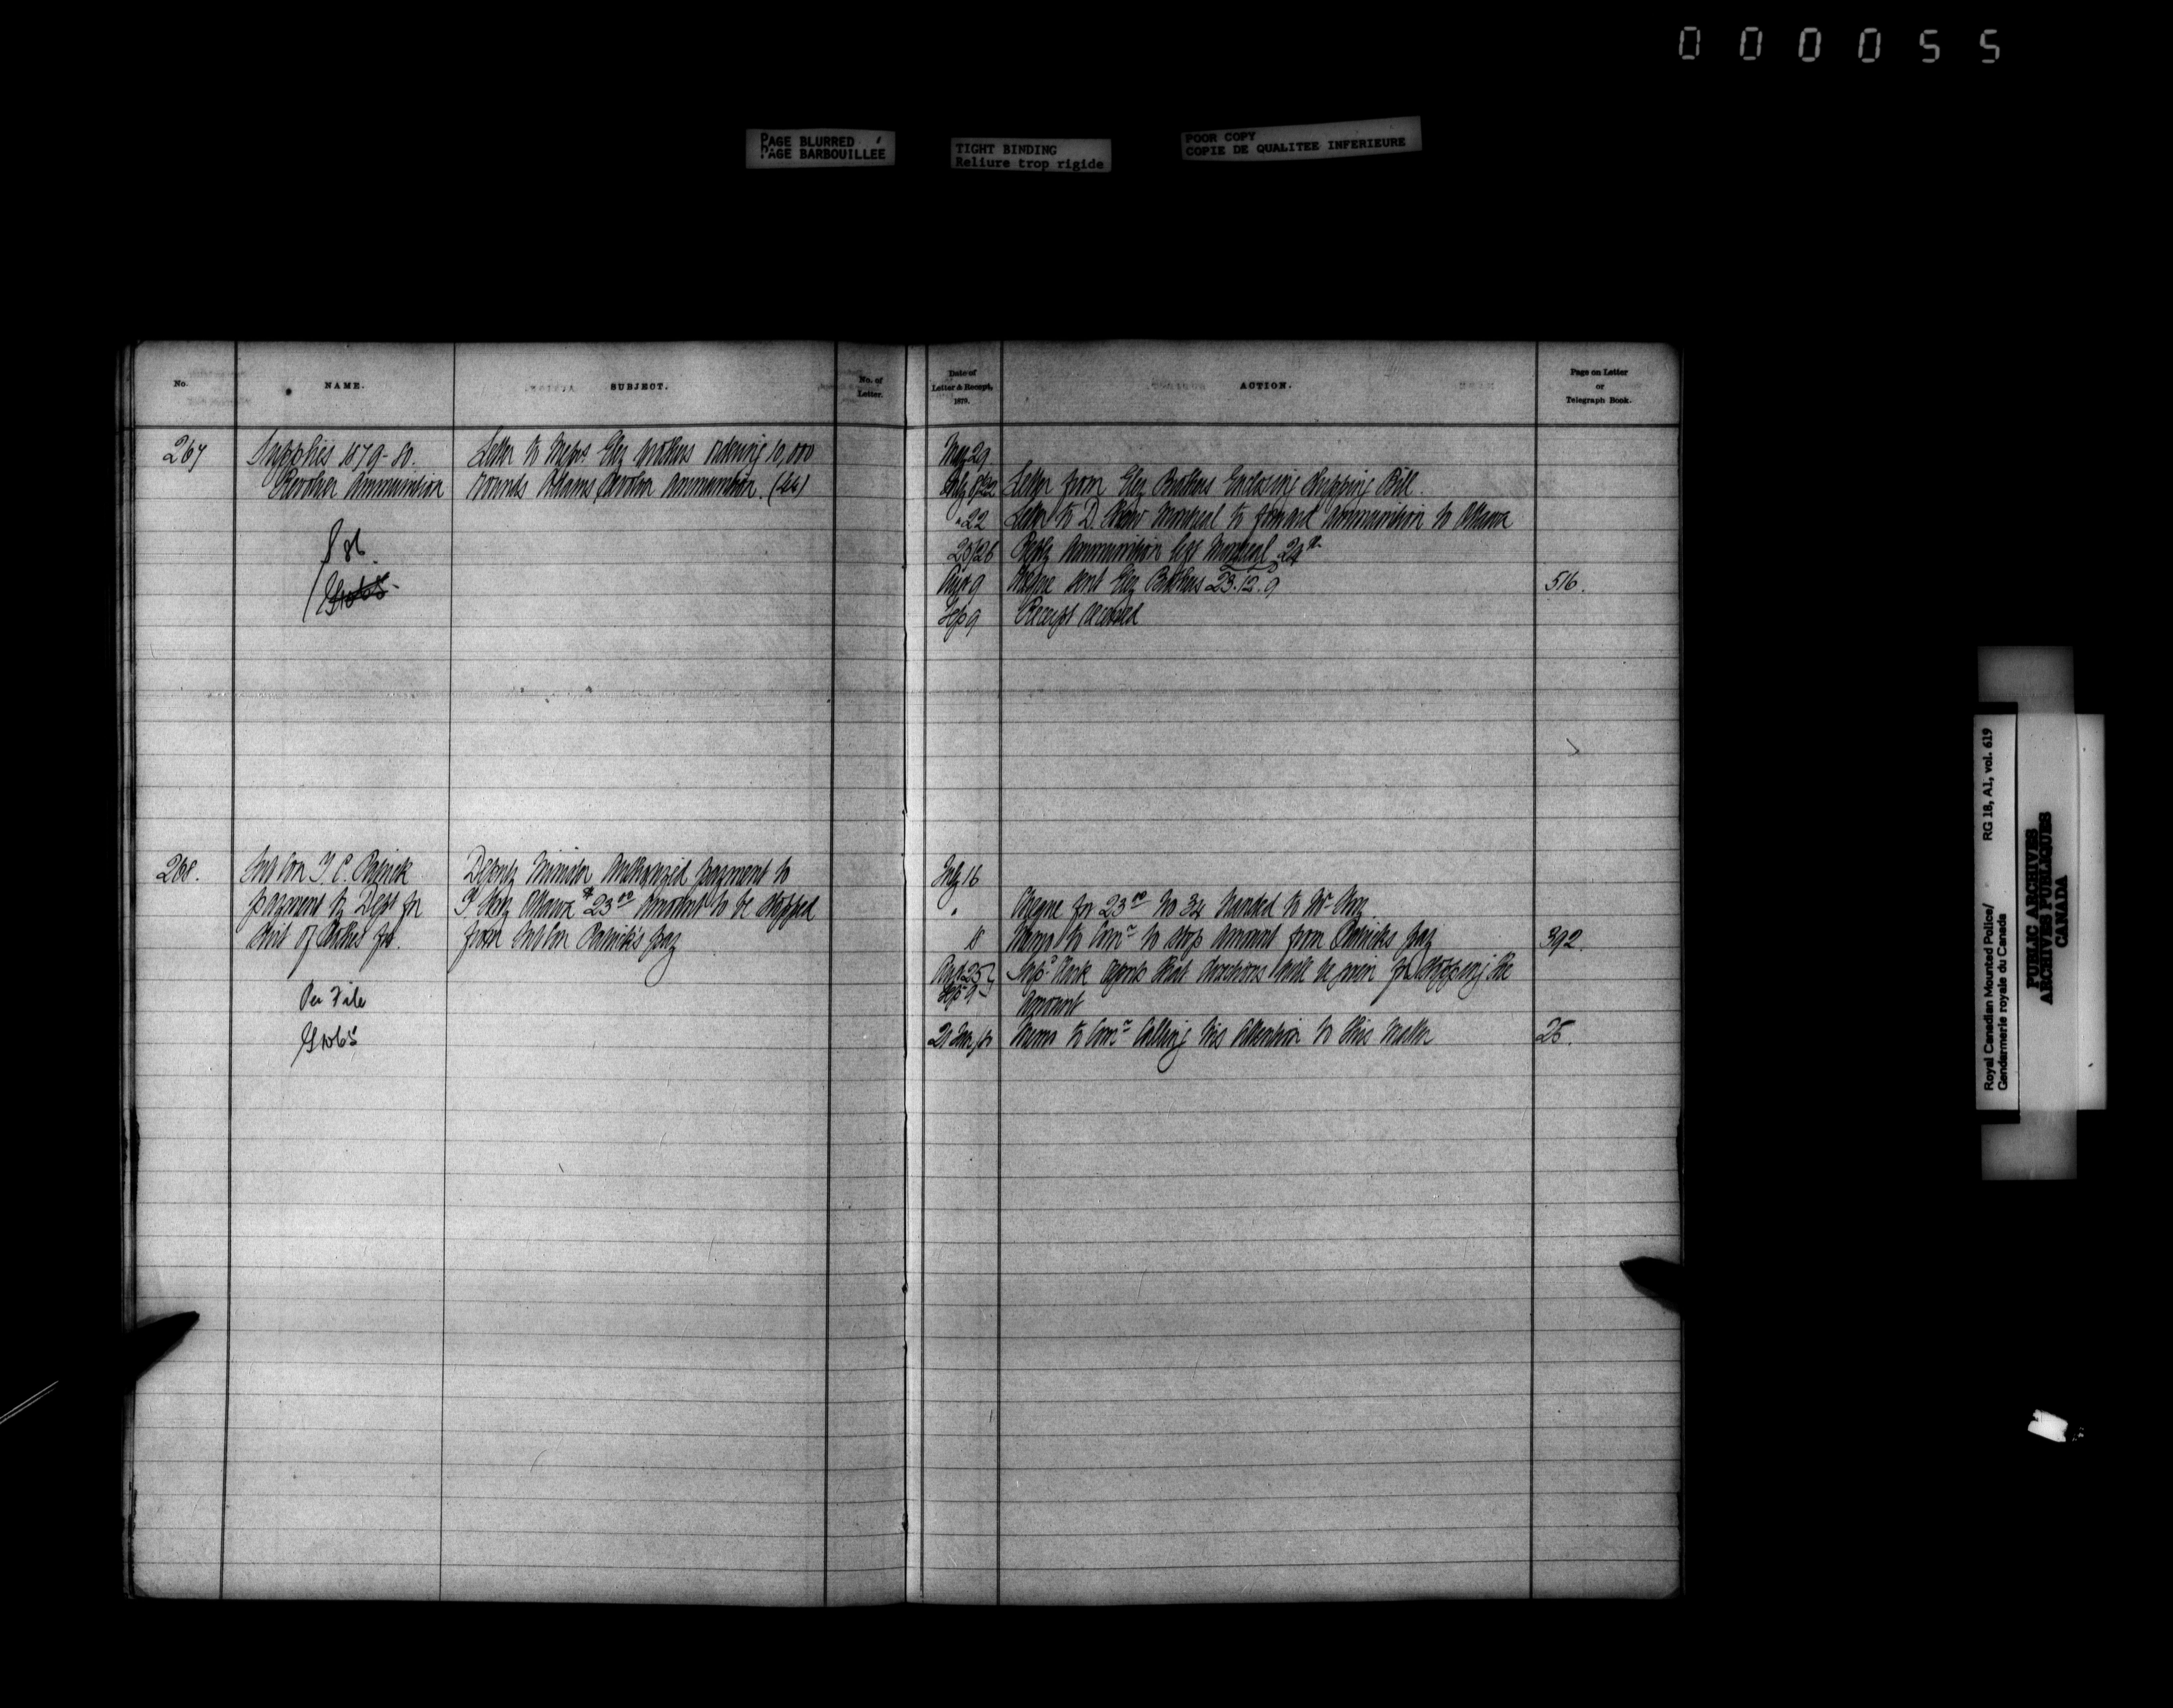 000055
PAGE BLURRED
PAGE BARBOUILLEE
TIGHT BINDING
Reliure trop rigide
POOR COPY
COPIE DE QUALITEE INFERIEURE
No.
NAME.
SUBJECT.
No. of
Letter.
Date of
Letter & Receipt,
1879.
ACTION.
Page on Letter
or
Telegraph Book.
267
Supplies 1879-80.
Revolver Ammunition
Letter to Messrs Eley Brothers ordering 10,000
rounds Adams Revolver Ammunition.
May 29
July 8/22 Letter from Eley Brothers Enclosing Shipping Bill.
" 22 Letter to D. Montreal to forward Ammunition to Ottawa
25/26 Reply Ammunition left Montreal 24th
Aug 9 Cheque sent Eley Brothers 23.12.9 516.
Sep 9 Receipt received
268.
Sub Con T. C. Patrick
payment by Dept for
Suit of Clothes for.
Per File
Deputy Minister Authorized payment to
Ottawa $23.00 amount to be stopped
from Sub Con Patrick's pay
July 16
" Cheque for 23.00 No 34 handed to Mr
18 Memo to Comr to stop amount from Patricks pay 392.
Aug 25
Sep 9
reports that directions will be given for stopping the
Amount
21 Memo to Comr Calling his Attention to this Matter 25.
Royal Canadian Mounted Police/ RG 18, A1, vol. 619
Gendarmerie royale du Canada
PUBLIC ARCHIVES
ARCHIVES PUBLIQUES
CANADA